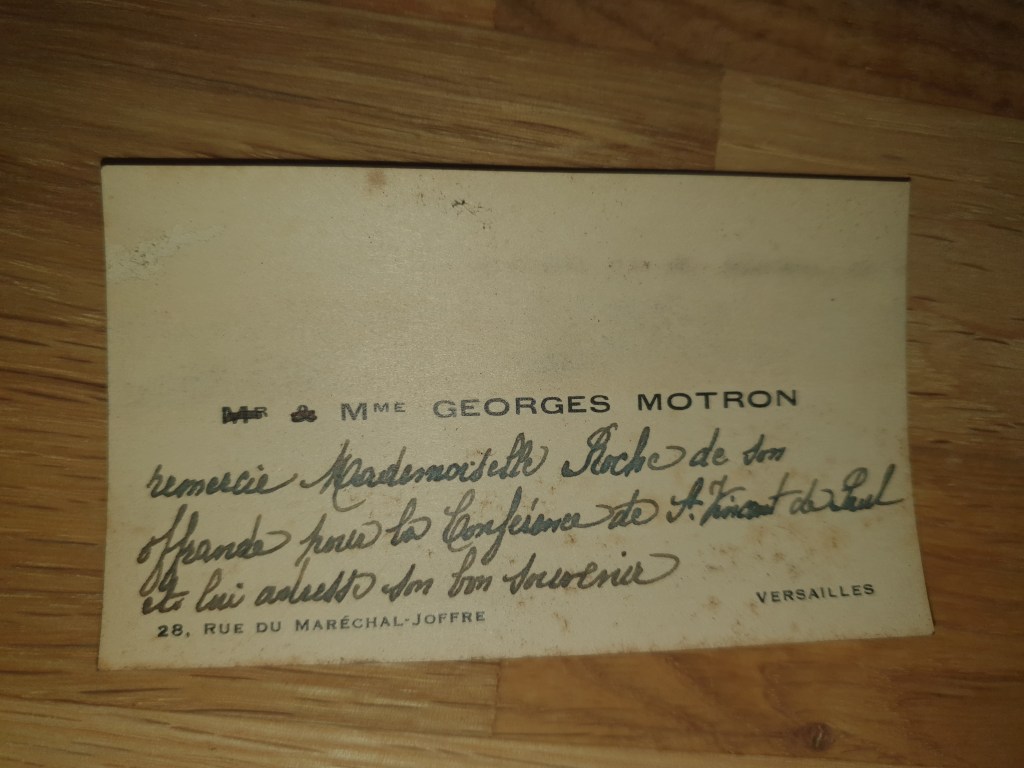 Mr & Mme GEORGES MOTRON
remercie Mademoiselle Roche de son
offrande pour la Conférence de St. Vincent de Paul
et lui adresse son bon souvenir
VERSAILLES
28, RUE DU MARÉCHAL-JOFFRE